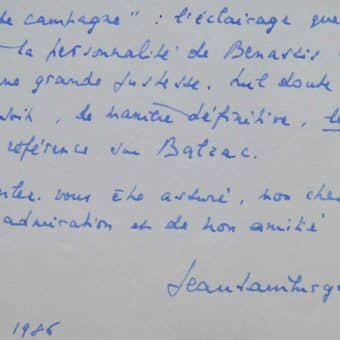 de campagne" : l'éclairage que
la personnalité de Benassis
une grande justesse. Nul doute
soit, de manière définitive, le
référence sur Balzac.
vous être assuré, mon cher
admiration et de mon amitié
1986